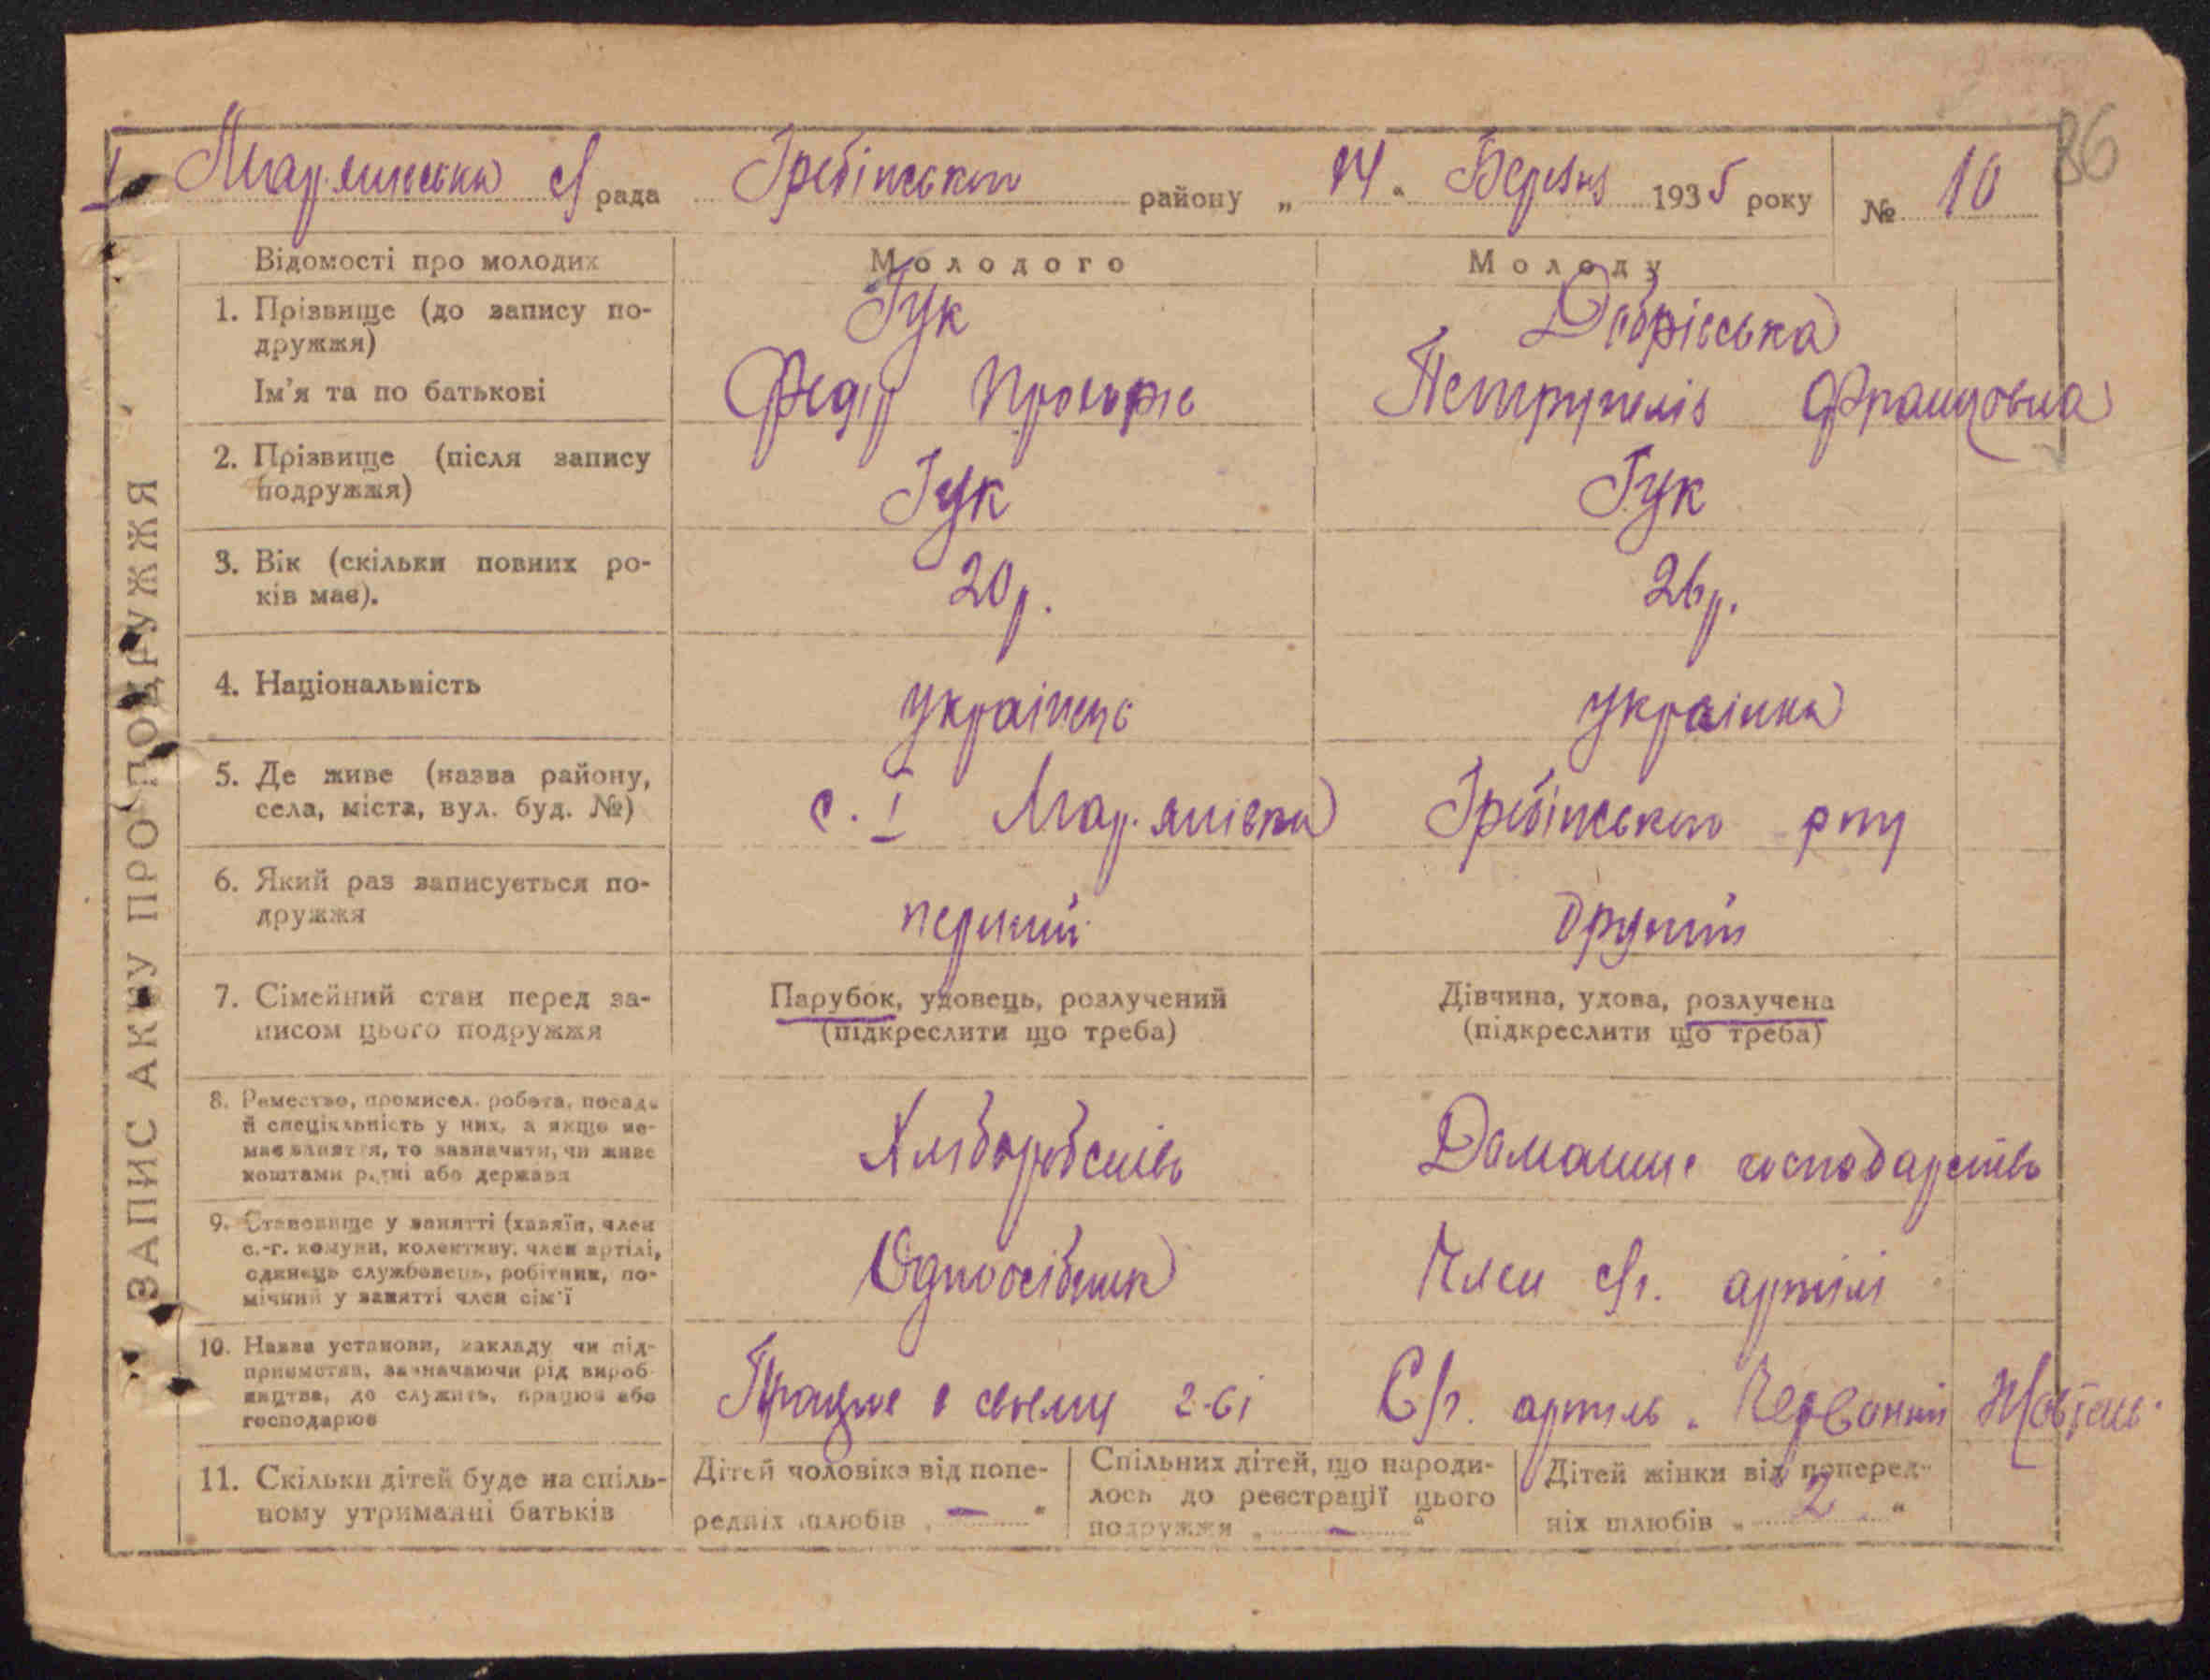 86
І Мар'янська с/рада Гребінського району „14" Березня 1935 року № 10
ЗАПИС АКТУ ПРО ПОДРУЖЖЯ
Відомості про молодих Молодого Молоду
1. Прізвище (до запису по-
дружжя)
Гук Добрівська
Ім'я та по батькові Федір Францовна
2. Прізвище (після запису
подружжя)
Гук Гук
3. Вік (скільки повних ро-
ків має).
20 р. 26 р.
4. Національність українець українка
5. Де живе (назва району,
села, міста, вул. буд. №)
с. І Мар'янівка Гребінського р-ну
6. Який раз записується по-
дружжя
перший другий
7. Сімейний стан перед за-
писом цього подружжя
Парубок, удовець, розлучений
(підкреслити що треба)
Дівчина, удова, розлучена
(підкреслити що треба)
8. Ремество, промисел, робота, посада
й спеціяльність у них, а якщо не-
має заняття, то зазначити, чи живе
коштами рідні або держави
Хліборобство Домашнє господарство
9. Становище у занятті (хазяїн, член
с.-г. комуни, колективу, член артілі,
одинець службовець, робітник, по-
мічний у занятті член сім'ї
Одноосібник Член с/г. артілі
10. Назва установи, закладу чи під-
приємства, зазначаючи рід вироб-
ництва, де служить, працює або
господарює
Працює в своему г-ві С/г. артіль „Червоний
11. Скільки дітей буде на спіль-
ному утриманні батьків
Дітей чоловіка від попе-
редніх шлюбів „ — "
Спільних дітей, що народи-
лось до реєстрації цього
подружжя „ — "
Дітей жінки від поперед-
ніх шлюбів „ 2 "